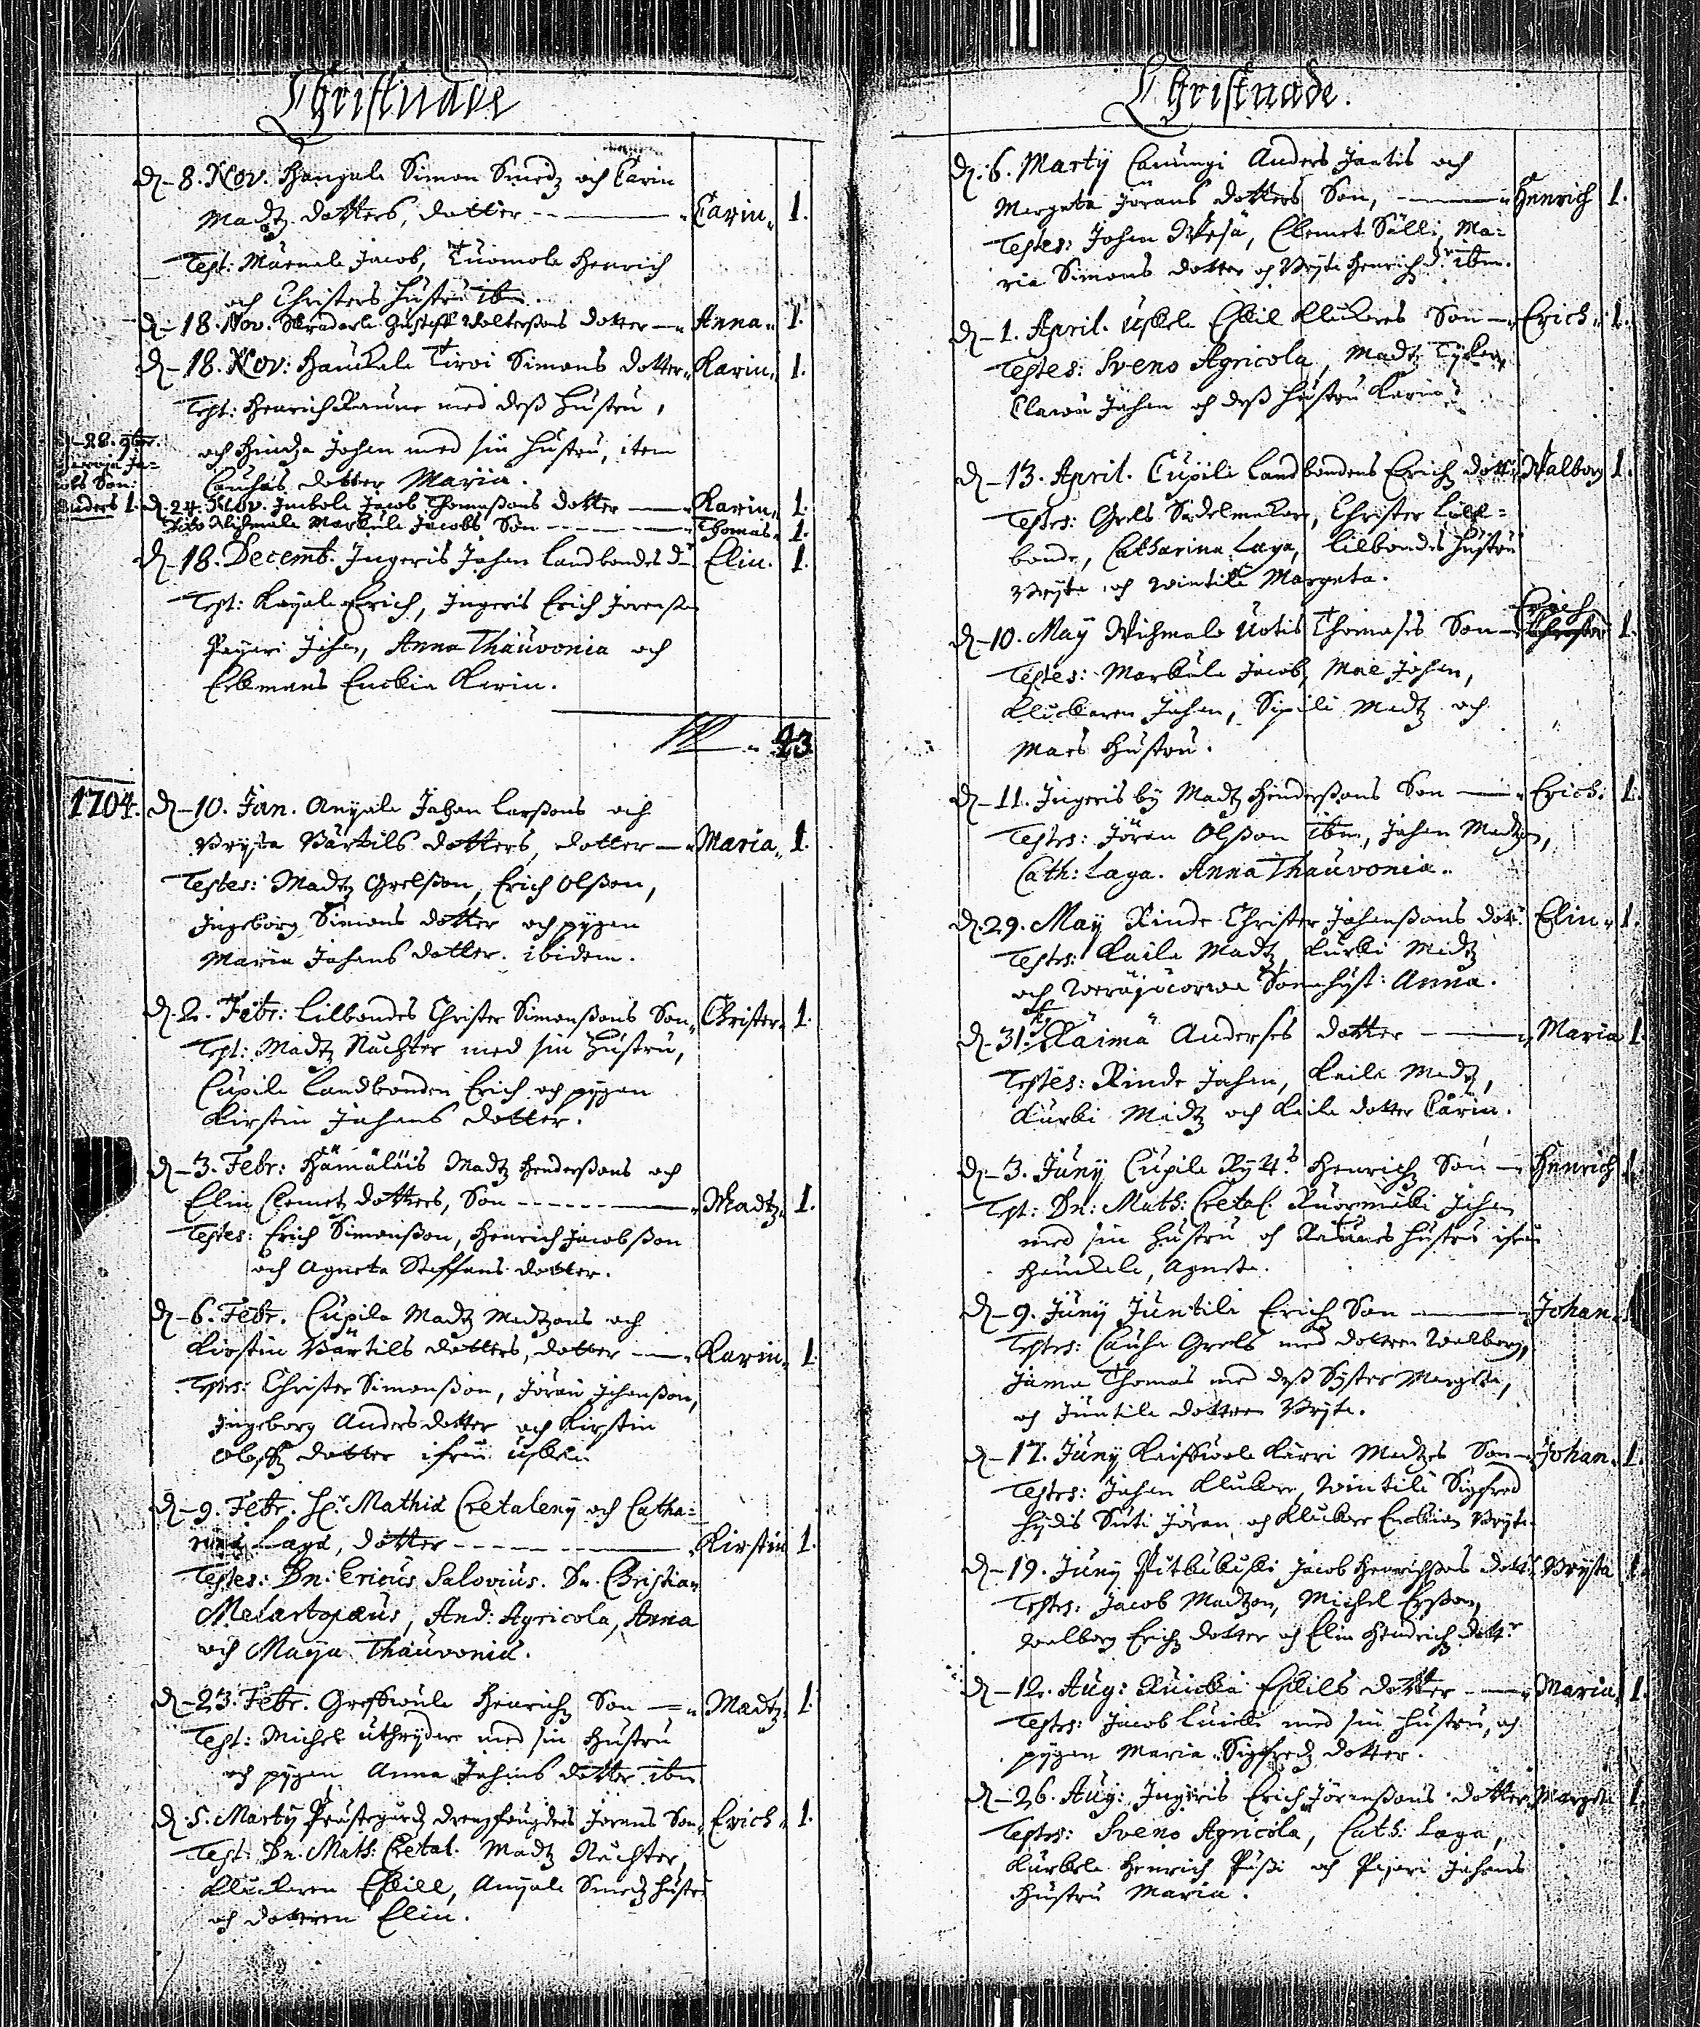 Christnade
d. 8. Nov. Hangala Simon Smedz och Carin
Madtz dotters, dotter - - - Carin 1.
Test: Mäenala Jacob, Tuomola Henrich
och Christers hustru ibm.
d. 18. Nov. Gustaff Woltersons dotter - Anna 1.
d. 18. Nov: Hanckala Tirvi Simons dotter Karin 1.
Test: Henrich Raune med dess hustru,
och Hindza Johan med sin hustru, item
Cauhais dotter Maria.
d. 28. 9br.
Jacobs Son:
Anders 1.
d. 24. Nov. Inbola Jacob Thomassons dotter - Karin 1.
Dito Wihmala Markula Jacobs Son - - - Thomas 1.
d. 18. Decemb. Ingeris Johan Landbondes dr Elin. 1.
Test: Kayala Erich, Ingeris Erich Jörensson
Payari Johan, Anna Thauvonia och
Eckmans Enckia Karin.
43
1704. d. 10. Jan. Anyala Johan Larssons och
Bryta Bärtils dotters, dotter - Maria 1.
Testes: Madtz Grelsson, Erich Olsson,
Ingeborg Simons dotter och pygan
Maria Johans dotter. ibidem.
d. 2. Febr: Lilbondes Christer Simonssons Son Christer 1.
Test: Madtz Nächter med sin hustru,
Cupila Landbonden Erich och pygan
Kirstin Johans dotter.
d. 3. Febr: Hämäläis Madtz Henderssons och
Elin Clemetz dotters, Son - - - Madtz 1.
Testes: Erich Simonsson, Henrich Jacobsson
och Agneta Staffans dotter.
d. 6. Febr. Cupila Madtz Madtzons och
Kirstin Bärtils dotters, dotter - Karin 1.
Testes: Christer Simonsson, Jöran Johansson,
Ingeborg Anders dotter och Kirstin
Oloffz dotter ifrån Uskela
d. 9. Febr. Hr. Mathiæ Cretaleny och Catha=
rinæ Laga, dotter - - - Kirstin 1.
Testes: Dn: Ericus Salovius. Dn. Christian
Melartopæus, And: Agricola, Anna
och Maya Thauvonia.
d. 23. Febr. Henrichz Son - Madtz 1.
Test: Michel Uthrydare med sin hustru
och pygan Anna Johans dotter ibm
d. 5. Marty Prästegårdz drengfougdens Jörans Son Erich 1.
Test: Dn. Math: Cretal. Madtz Nächter,
Kluckaren Eskill, Anyala Smedz hustru
och dotteren Elin.
Christnade.
d. 6. Marty Canungi Anders Jaatis och
Margeta Jörans dotters Son, - - Henrich 1.
Testes: Johan Wesa, Clemet Sälli, Ma=
ria Simons dotter och Bryta Henrich dr ibm.
d. 1. April. Uskela Eskil Kluckares Son - Erich 1.
Testes: Sveno Agricola, Madtz
Johan och dess hustru Karin
d. 13. April. Cupila Landbondens Erichz dottr Walborg 1.
Testes: Grels Sadelmakare, Christer Lill=
bonde, Catharina Laga, Lilbondes hustru
Bryta och Wintilä Margeta.
d. 10. May Wihmalo Uotis Thomasis Son - Erich 1.
Testes: Markula Jacob, Mae Johan,
Kluckaren Johan, Sipilä Madtz och
Maes hustru.
d. 11. Ingeris by Madtz Henderssons Son - Erich. 1.
Testes: Jören Olsson ibm, Johan Madtzon,
Cath: Laga. Anna Thauvonia.
d. 29. May Rinde Christer Johanssons dott. Elin 1.
Testes: Kaila Madtz, Kurki Madtz
och Sonhust: Anna.
d. 31. Raima Anderses dotter - - - Maria 1.
Testes: Rinde Johan, Kaila Madtz,
Kurki Madtz och Kaila dotter Carin.
d. 3. Juny Cupila Henrichz Son - Henrich 1.
Test: Dn: Math: Cretal. Ruormäki Johan
med sin hustru och Raunes hustru ifrån
Hanckala, Agneta.
d. 9. Juny Juntila Erichz Son - - Johan 1.
Testes: Cauha Grels med dotteren Walborg,
Jama Thomas med dess Syster Margeta,
och Juntila dotteren Bryta.
d. 17. Juny Karri Madtzes Son - Johan 1.
Testes: Johan Kluckare, Wintilä Sigfred
Jöran och Kluckare Enckian Bryta.
d. 19. Juny Pitkäkuski Jacob Henrichssons dottr Bryta 1.
Testes: Jacob Madtzon, Michel Ersson,
Walborg Erichz dotter och Elin Hendrichz dottr
d. 12. Aug: Eskils dotter - Maria 1.
Testes: Jacob med sin hustru, och
pygan Maria Sigfredz dotter.
d. 26. Aug: Ingeris Erich Jörenssons dotter Margeta 1.
Testes: Sveno Agricola, Cath: Laga,
Kurkela Henrich och Pajari Johans
hustru Maria.